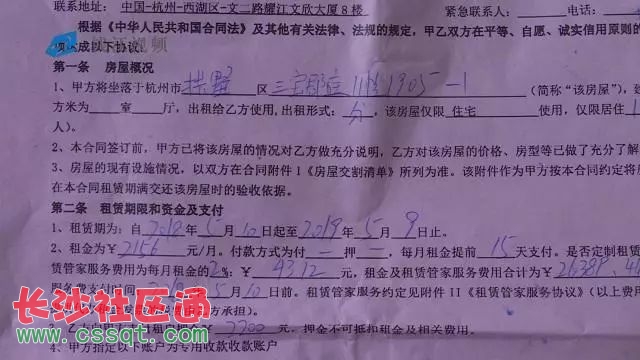 联系地址: 中国-杭州-西湖区-文二路耀江文欣大厦8楼 紧急联系人:
根据《中华人民共和国合同法》及其他有关法律、法规的规定,甲乙双方在平等、自愿、诚实信用原则的
达成以下协议。
第一条 房屋概况
1、甲方将坐落于杭州市 拱墅 区 1905-1 (简称“该房屋”),建
方米为 室 厅,出租给乙方使用,出租形式: 分 ,该房屋仅限 住宅 使用,仅限居住1
人)。
2、本合同签订前,甲方已将该房屋的情况对乙方做充分说明,乙方对该房屋的价格、房型等已做了充分了解
3、房屋的现有设施情况,以双方在合同附件1《房屋交割清单》所列为准。该附件作为甲方按本合同约定将
在本合同租赁期满交还该房屋时的验收依据。
第二条 租赁期限和资金及支付
1、租赁期为:自 2018 年 5 月 10 日起至 2019 年 5 月 9 日止。
2、租金为¥ 2156 元/月,付款方式为付 一 押 一 ,每月租金提前 15 天支付。是否定制租赁
赁管家服务费用为每月租金的 2 %:¥ 43.12 元,租金及租赁管家服务费用合计为¥
服务费支付时间 5 月 10 日前。租赁管家服务约定见附件II《租赁管家服务协议》(以上费用
承担)。
2200 元,押金不可抵扣租金及相关费用。
4、甲方指定以下账户为专用收款收款账户
长沙社区通
www.cssqt.com